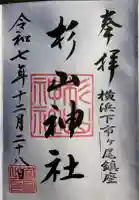 奉拝
横浜下市ヶ尾鎮座
杉山神社
令和七年十二月二十八日